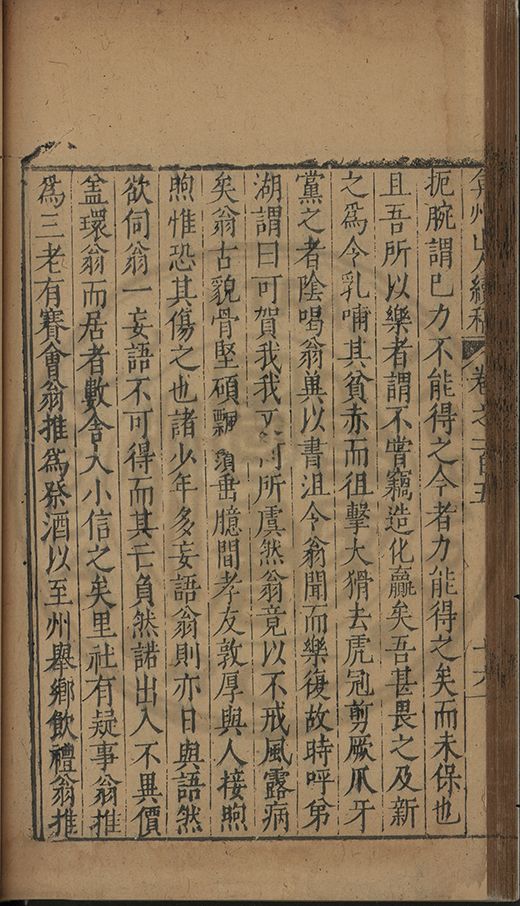 弇州山人續稿 卷之一百五 十六
扼腕謂已力不能得之今者力能得之矣而未保也
且吾所以樂者謂不嘗竊造化羸矣吾甚畏之及新
之爲令乳哺其貧赤而徂擊大猾去虎冠剪厥爪牙
黨之者陰喝翁兾以書沮令翁聞而樂復故時呼弟
湖謂曰可賀我我又何所虞然翁竟以不戒風露病
矣翁古貌骨堅碩飄鬚垂臆間孝友敦厚與人接煦
煦惟恐其傷之也諸少年多妄語翁則亦日與語然
欲伺翁一妄語不可得而其亡負然諾出入不異價
葢環翁而居者數舍大小信之矣里社有疑事翁推
爲三老有賽會翁推爲祭酒以至州舉鄉飲禮翁推